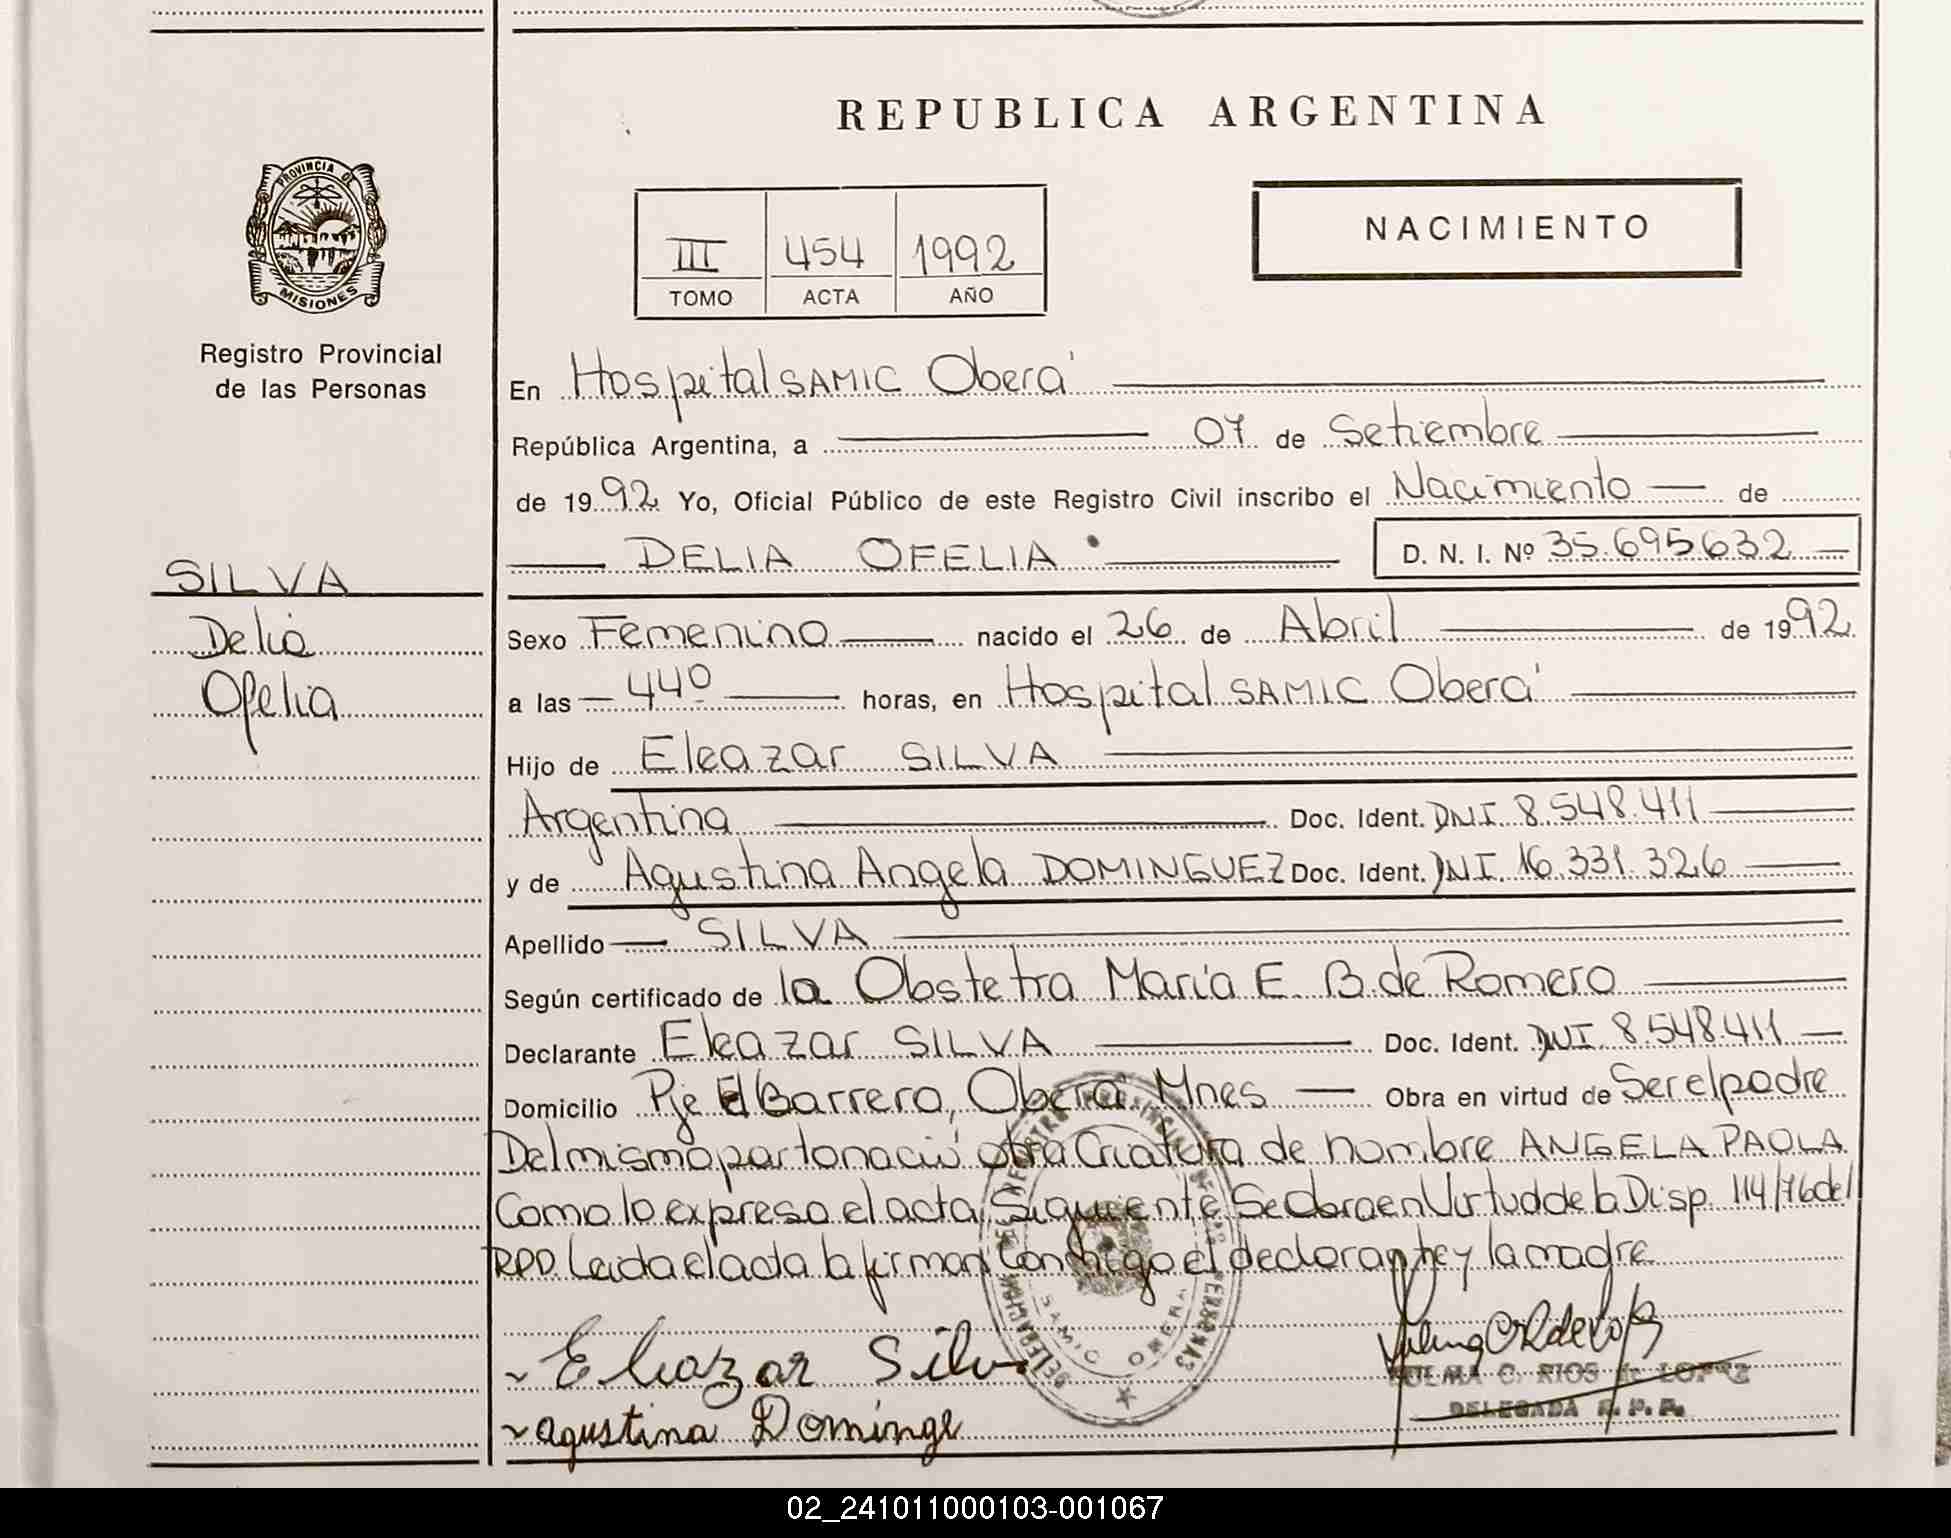 REPUBLICA ARGENTINA
PROVINCIA DE
MISIONES
Registro Provincial
de las Personas
III 454 1992
TOMO ACTA AÑO
NACIMIENTO
SILVA
Delia
Ofelia
En Hospital SAMIC Oberá
República Argentina, a 07 de Setiembre
de 1992 Yo, Oficial Público de este Registro Civil inscribo el Nacimiento de
DELIA OFELIA D. N. I. Nº 35.695632
Sexo Femenino nacido el 26 de Abril de 1992
a las 44º horas, en Hospital SAMIC Oberá
Hijo de Eleazar SILVA
Argentina Doc. Ident. DNI 8.548.411
y de Agustina Angela DOMINGUEZ Doc. Ident. DNI. 16.331.326
Apellido SILVA
Según certificado de la Obstetra María E. B. de Romero
Declarante Eleazar SILVA Doc. Ident. DNI 8.548.411
Domicilio Pje El Barrero, Oberá Mnes Obra en virtud de Ser el padre
Del mismo parto nació otra Criatura de nombre ANGELA PAOLA
Como lo expresa el acta Siguiente Se Obra en Virtud de la Disp. 114/76 del
RPP. Leida el acta la firman Conmigo el declarante y la madre
Eleazar Silva
agustina Domingе
ZULMA C. RIOS de LOPEZ
DELEGADA R. P. P.
SAMIC OBERA
02_241011000103-001067